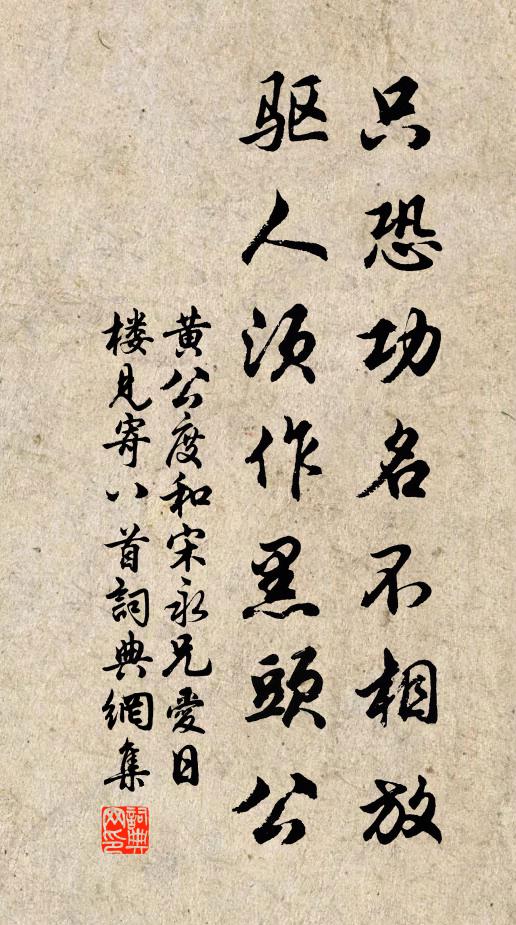 只恐功名不相放
驱人须作黑頭公
黄公度和宋永兄愛日
楼見寄八首詞典網集
詞典
网印